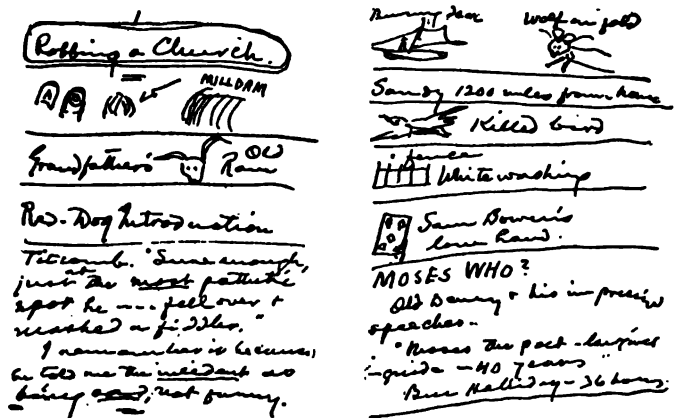 Robbing a Church.
MILLDAM
Grandfather's Old Ram
Red-Dog Introduction
Titcomb. "Sure enough,
just at the most pathetic
spot he --- fell over &
mashed a fiddle."
I remember is because,
he told me the incident as
being sad, not funny.
Bunny Jack
Wolf in fold
Sandy 1200 miles from home
Killed bird
fence
Whitewashing
Sam Bowen's
lone hand.
MOSES WHO?
Old Davey & his
speeches--
"Moses the poet - lawgiver
-guide - 40 years"
Ben Halliday - 36 hours.